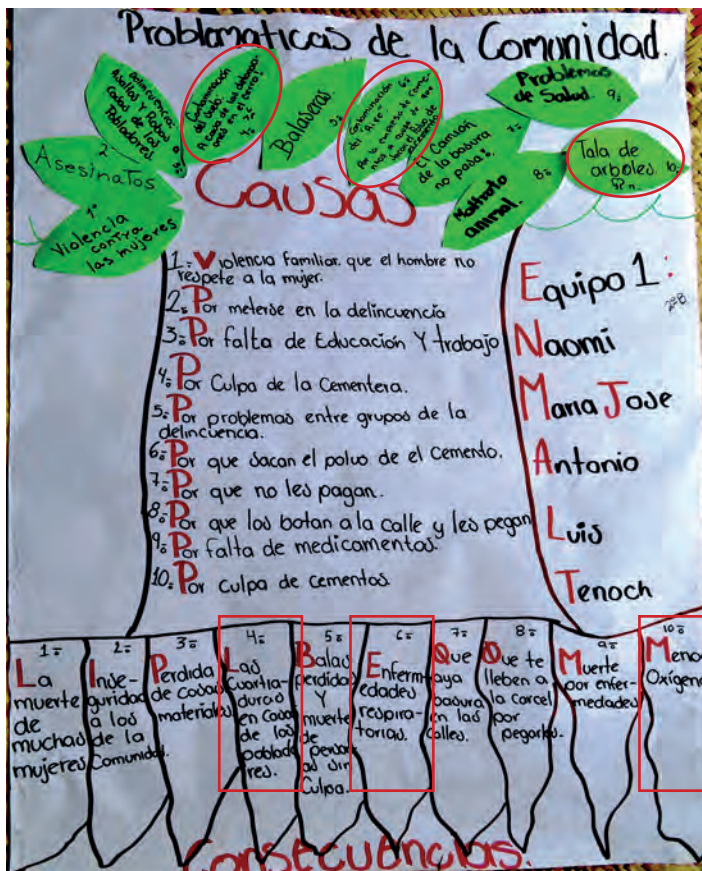 Problematicas de la Comunidad.
1º
Violencia
contra
las mujeres
2º
Asesinatos
delincuencias
Asaltos Y Robos a
casas de los
Pobladores.
3º
Contaminación
del Suelo.
4º
Balaseras.
5º
6º
Contaminación
del Aire
El Camión
de la basura
no pasa.
7º
Maltrato
animal.
8º
Problemas
de Salud.
9º
Tala de
arboles.
10º
Causas
1º Violencia familiar. que el hombre no
respete a la mujer.
2º Por meterse en la delincuencia
3º Por falta de Educación Y trabajo
4º Por Culpa de la Cementera.
5º Por problemas entre grupos de la
delincuencia.
6º Por que sacan el polvo de el Cemento.
7º Por que no les pagan.
8º Por que los botan a la calle y les pegan
9º Por falta de medicamentos.
10º Por culpa de cementos.
Equipo 1:
2ºB
Naomi
Maria Jose
Antonio
Luis
Tenoch
1º
La
muerte
de
muchas
mujeres
2º
Inse-
guridad
a los
de la
Comunidad.
3º
Perdida
de cosas
materiales.
4º
Las
cuartia-
duras
en Casas
de los
poblado
res.
5º
Balas
perdidas
Y
muerte
de
person
as sin
Culpa.
6º
Enferm
edades
respira-
torias.
7º
Que
aya
basura
en las
calles.
8º
Que te
lleben a
la carcel
por
pegarles.
9º
Muerte
por enfer-
medades
10º
Menos
Oxigeno
Consecuencias.